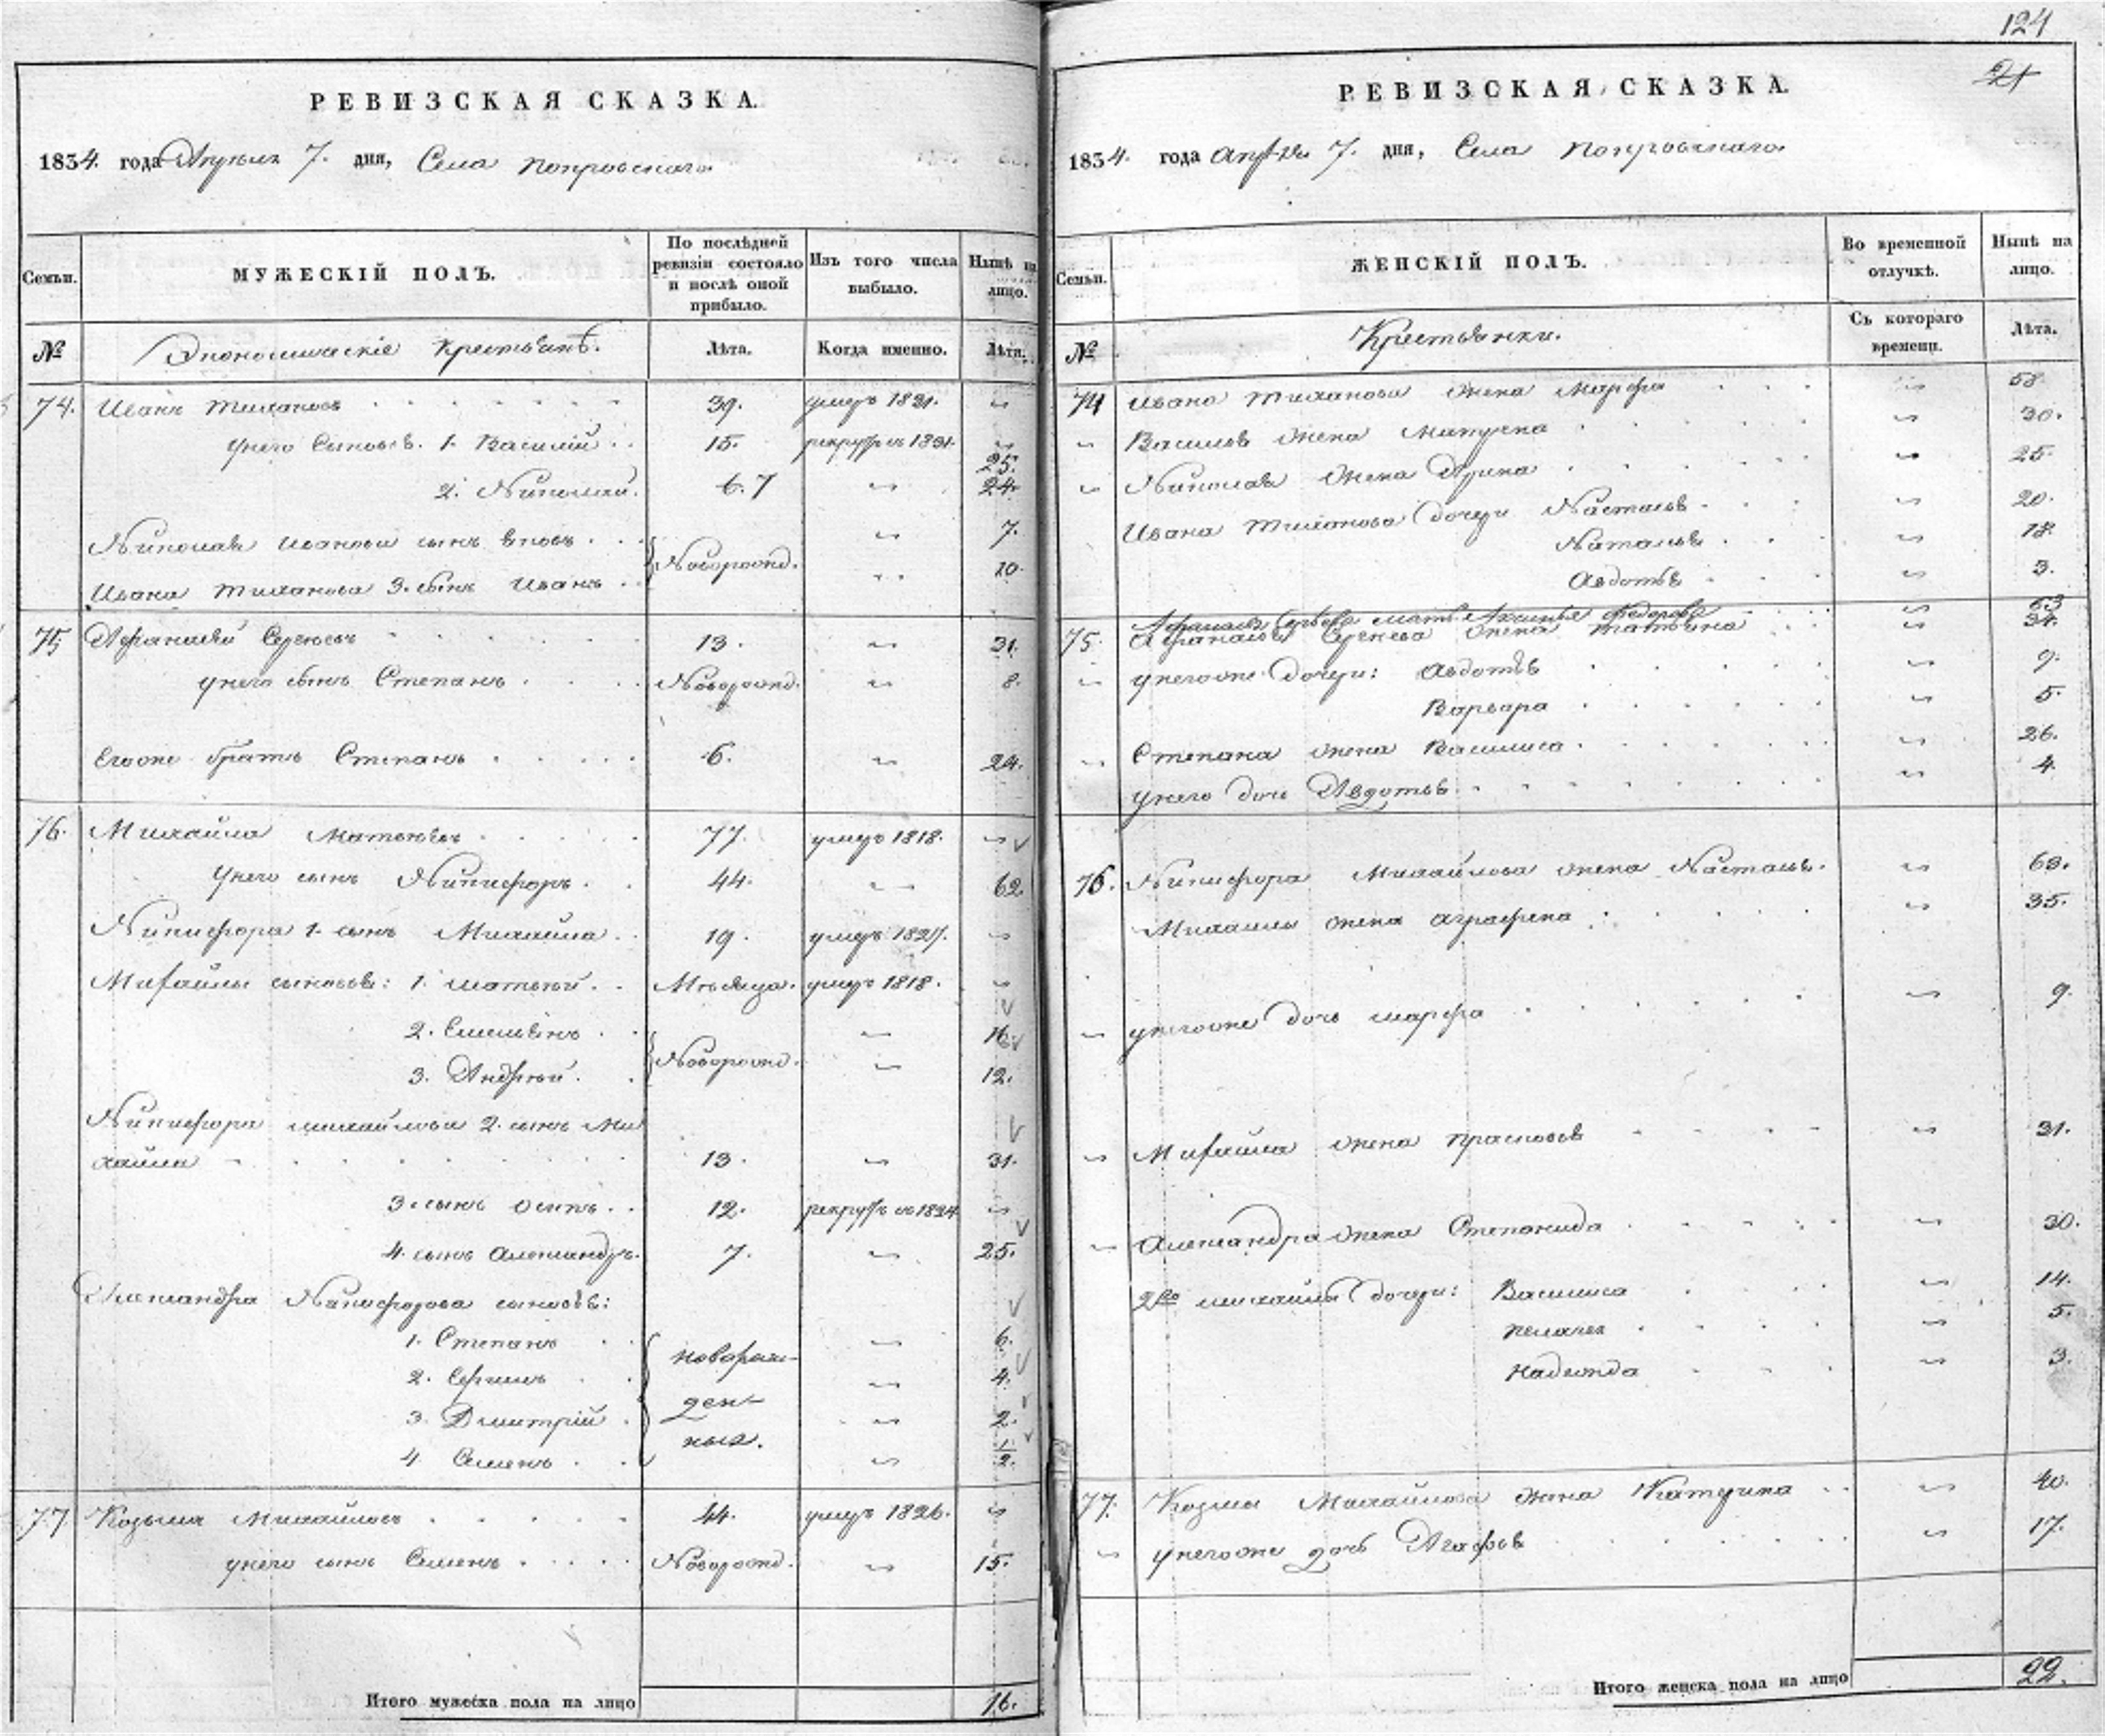 РЕВИЗСКАЯ СКАЗКА.
1834. года Апреля 7. дня, Села Покровскаго
Семьи.
МУЖЕСКІЙ ПОЛЪ.
По послѣдней ревизіи состояло и послѣ оной прибыло.
Изъ того числа выбыло.
Нынѣ на лицо.
№ Экономическіе Крестьянѣ. Лѣта. Когда именно. Лѣта.
74. Иванъ Тихановъ 39. умеръ 1831. "
у него Сыновья. 1. Василій 15. рекрутъ въ 1831. "
25.
2. Николай. 6. 7 " 24.
Николая Иванова сынъ " 7.
Новорожд.
Ивана Тиханова 3. сынъ Иванъ " 10.
75 Афанасій Сергеевъ 13. " 31.
у него сынъ Степанъ Новорожд. " 8.
Егоже братъ Степанъ 6. " 24.
76. Михайла Матвѣевъ 77. умеръ 1818. "
У него сынъ Никифоръ 44. " 62.
Никифора 1. сынъ Михайла 19. умеръ 1827. "
Михайлы сыновья: 1. Матвѣй Мѣсяца. умеръ 1818. "
2. Емельянъ " 16.
Новорожд.
3. Андрѣй " 12.
Никифора Михайлова 2. сынъ Ми
хайла 13. " 31.
3. сынъ Осипъ 12. рекрутъ въ 1824 "
4. сынъ Александръ 7. " 25.
Александра Никифорова сыновья:
1. Степанъ " 6.
новорож-
2. Сергѣй " 4.
ден-
3. Дмитрій " 2.
ныя.
4. Семенъ " 1/2.
77 Козьма Михайловъ 44. умеръ 1826. "
у него сынъ Семенъ Новорожд. " 15.
Итого мужеска пола на лицо 16.
124
21
РЕВИЗСКАЯ СКАЗКА.
1834. года Апреля 7. дня, Села Покровскаго
Семьи.
ЖЕНСКІЙ ПОЛЪ.
Во временной отлучкѣ.
Нынѣ на лицо.
№ Крестьянки. Съ котораго времени. Лѣта.
74 Ивана Тиханова жена Марфа " 58.
" Василья жена " 30.
" Николая жена Арина " 25.
Ивана Тиханова дочери Настасья " 20.
Наталья " 18.
Авдотья " 3.
Афанасья Сергеева мать Аксинья Федорова " 63
75. Афанасья Сергеева жена Татьяна " 34.
" у негоже дочери: Авдотья " 9.
Варвара " 5.
" Степана жена Василиса " 26.
У него дочь Авдотья " 4.
76. Никифора Михайлова жена Настасья " 63.
Михайлы жена Аграфена " 35.
" у негоже дочь Марфа " 9.
" Михайла жена Прасковья " 31.
" Александра жена Степанида " 30.
2го Михайлы дочери: Василиса " 14.
Пелагея " 5.
Надежда " 3.
77. Козмы Михайлова жена Катерина " 40.
" у негоже дочь Агафья " 17.
Итого женска пола на лицо 22.